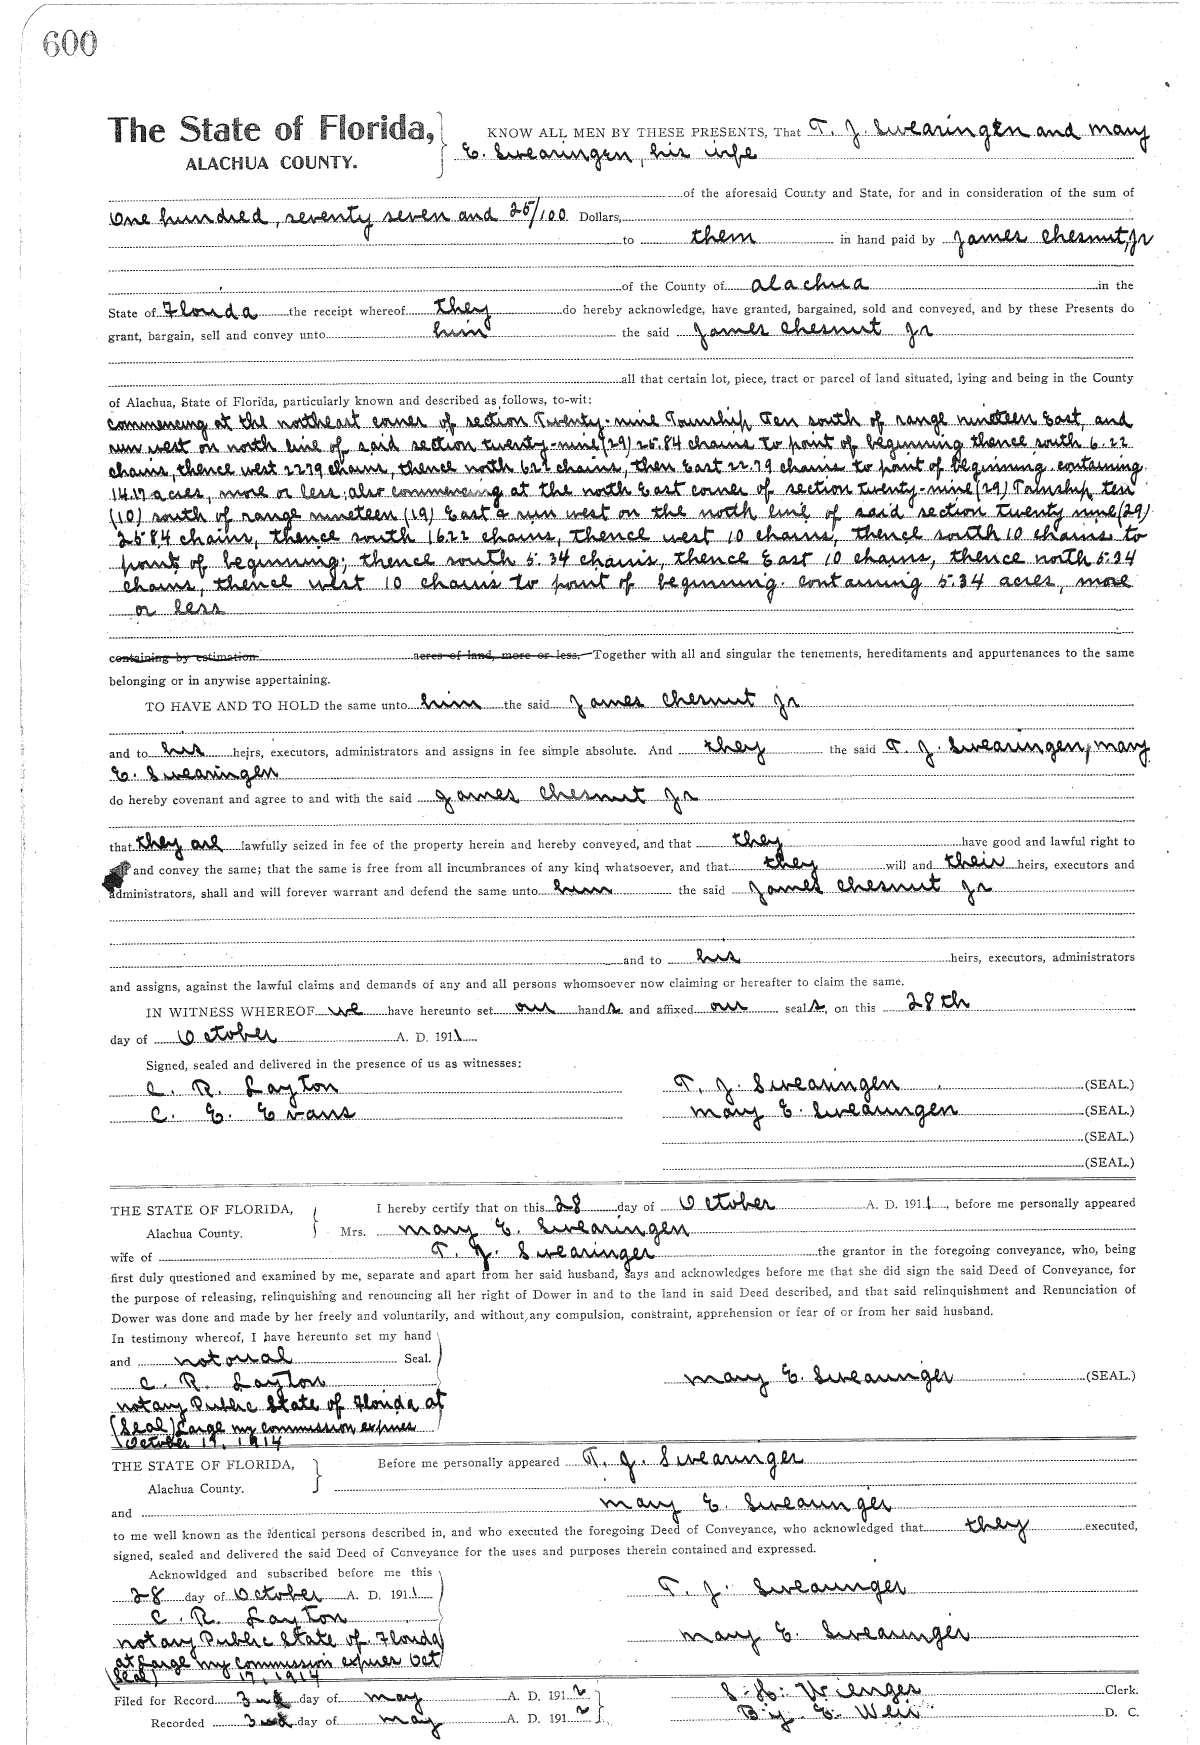 600
The State of Florida,
ALACHUA COUNTY.
KNOW ALL MEN BY THESE PRESENTS, That T. J. Swearingen and Mary
E. Swearingen, his wife
of the aforesaid County and State, for and in consideration of the sum of
One hundred, seventy seven and 25/100 Dollars,
to them in hand paid by James Chesnut, Jr
of the County of Alachua in the
State of Florida the receipt whereof they do hereby acknowledge, have granted, bargained, sold and conveyed, and by these Presents do
grant, bargain, sell and convey unto him the said James Chesnut Jr
all that certain lot, piece, tract or parcel of land situated, lying and being in the County
of Alachua, State of Florida, particularly known and described as follows, to-wit:
commencing at the northeast corner of section Twenty-nine Township Ten south of range nineteen East, and
run west on north line of said section twenty-nine (29) 25.84 chains to point of beginning thence south 6.22
chains, thence west 22.79 chains, thence north 6.22 chains, then East 22.79 chains to point of beginning. containing
14.17 acres, more or less; also commencing at the north East corner of section twenty-nine (29) Township ten
(10) south of range nineteen (19) East & run west on the north line of said section twenty nine (29)
25.84 chains, thence south 16.22 chains, thence west 10 chains, thence south 10 chains to
point of beginning; thence south 5.34 chains, thence East 10 chains, thence north 5.34
chains, thence west 10 chains to point of beginning. containing 5.34 acres, more
or less
containing by estimation acres of land, more or less. Together with all and singular the tenements, hereditaments and appurtenances to the same
belonging or in anywise appertaining.
TO HAVE AND TO HOLD the same unto him the said James Chesnut Jr
and to his heirs, executors, administrators and assigns in fee simple absolute. And they the said T. J. Swearingen, Mary
E. Swearingen
do hereby covenant and agree to and with the said James Chesnut Jr
that they are lawfully seized in fee of the property herein and hereby conveyed, and that they have good and lawful right to
and convey the same; that the same is free from all incumbrances of any kind whatsoever, and that they will and their heirs, executors and
administrators, shall and will forever warrant and defend the same unto him the said James Chesnut Jr
and to his heirs, executors, administrators
and assigns, against the lawful claims and demands of any and all persons whomsoever now claiming or hereafter to claim the same.
IN WITNESS WHEREOF we have hereunto set our hands and affixed our seals, on this 28th
day of October A. D. 1911
Signed, sealed and delivered in the presence of us as witnesses:
C. R. Layton T. J. Swearingen (SEAL.)
C. E. Evans Mary E. Swearingen (SEAL.)
(SEAL.)
(SEAL.)
THE STATE OF FLORIDA, I hereby certify that on this 28 day of October A. D. 1911, before me personally appeared
Alachua County. Mrs. Mary E. Swearingen
wife of T. J. Swearinger the grantor in the foregoing conveyance, who, being
first duly questioned and examined by me, separate and apart from her said husband, says and acknowledges before me that she did sign the said Deed of Conveyance, for
the purpose of releasing, relinquishing and renouncing all her right of Dower in and to the land in said Deed described, and that said relinquishment and Renunciation of
Dower was done and made by her freely and voluntarily, and without any compulsion, constraint, apprehension or fear of or from her said husband.
In testimony whereof, I have hereunto set my hand
and notorial Seal.
C. R. Layton Mary E. Swearinger (SEAL.)
notary Public State of Florida at
(Seal) Large my commission expires
October 17, 1914
THE STATE OF FLORIDA, Before me personally appeared T. J. Swearinger
Alachua County.
and Mary E. Swearinger
to me well known as the identical persons described in, and who executed the foregoing Deed of Conveyance, who acknowledged that they executed,
signed, sealed and delivered the said Deed of Conveyance for the uses and purposes therein contained and expressed.
Acknowldged and subscribed before me this
28 day of October A. D. 1911 T. J. Swearinger
C. R. Layton
notary Public State of Florida Mary E. Swearinger
at Large my commission expires Oct
(Seal) 17, 1914
Filed for Record 3rd day of May A. D. 1912 S. H. Wienges Clerk.
Recorded 3rd day of May A. D. 1912 By E. Weir D. C.